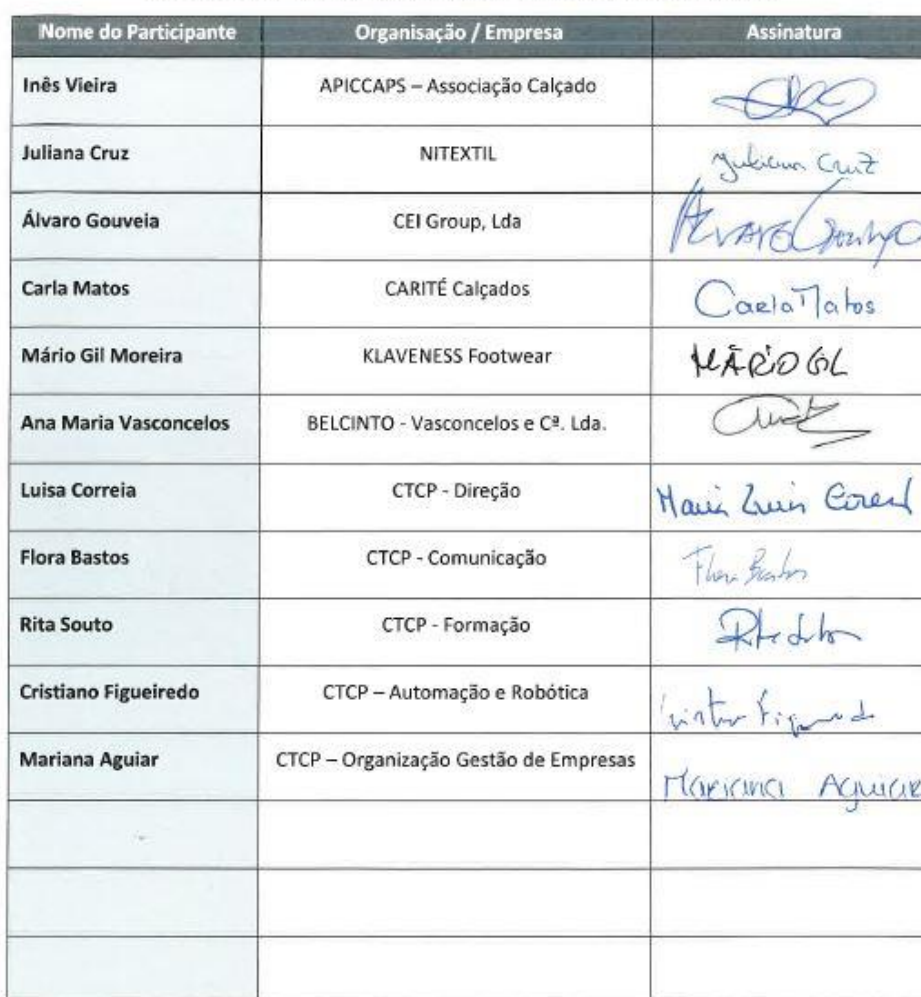 Nome do Participante Organisação / Empresa Assinatura
Inês Vieira APICCAPS – Associação Calçado
Juliana Cruz NITEXTIL Juliana Cruz
Álvaro Gouveia CEI Group, Lda Alvaro Gouveia
Carla Matos CARITÉ Calçados Carla Matos
Mário Gil Moreira KLAVENESS Footwear MÁRIO GIL
Ana Maria Vasconcelos BELCINTO - Vasconcelos e Cª. Lda.
Luisa Correia CTCP - Direção Maria Luisa Correia
Flora Bastos CTCP - Comunicação Flora Bastos
Rita Souto CTCP - Formação Rita Souto
Cristiano Figueiredo CTCP – Automação e Robótica Figueiredo
Mariana Aguiar CTCP – Organização Gestão de Empresas Mariana Aguiar